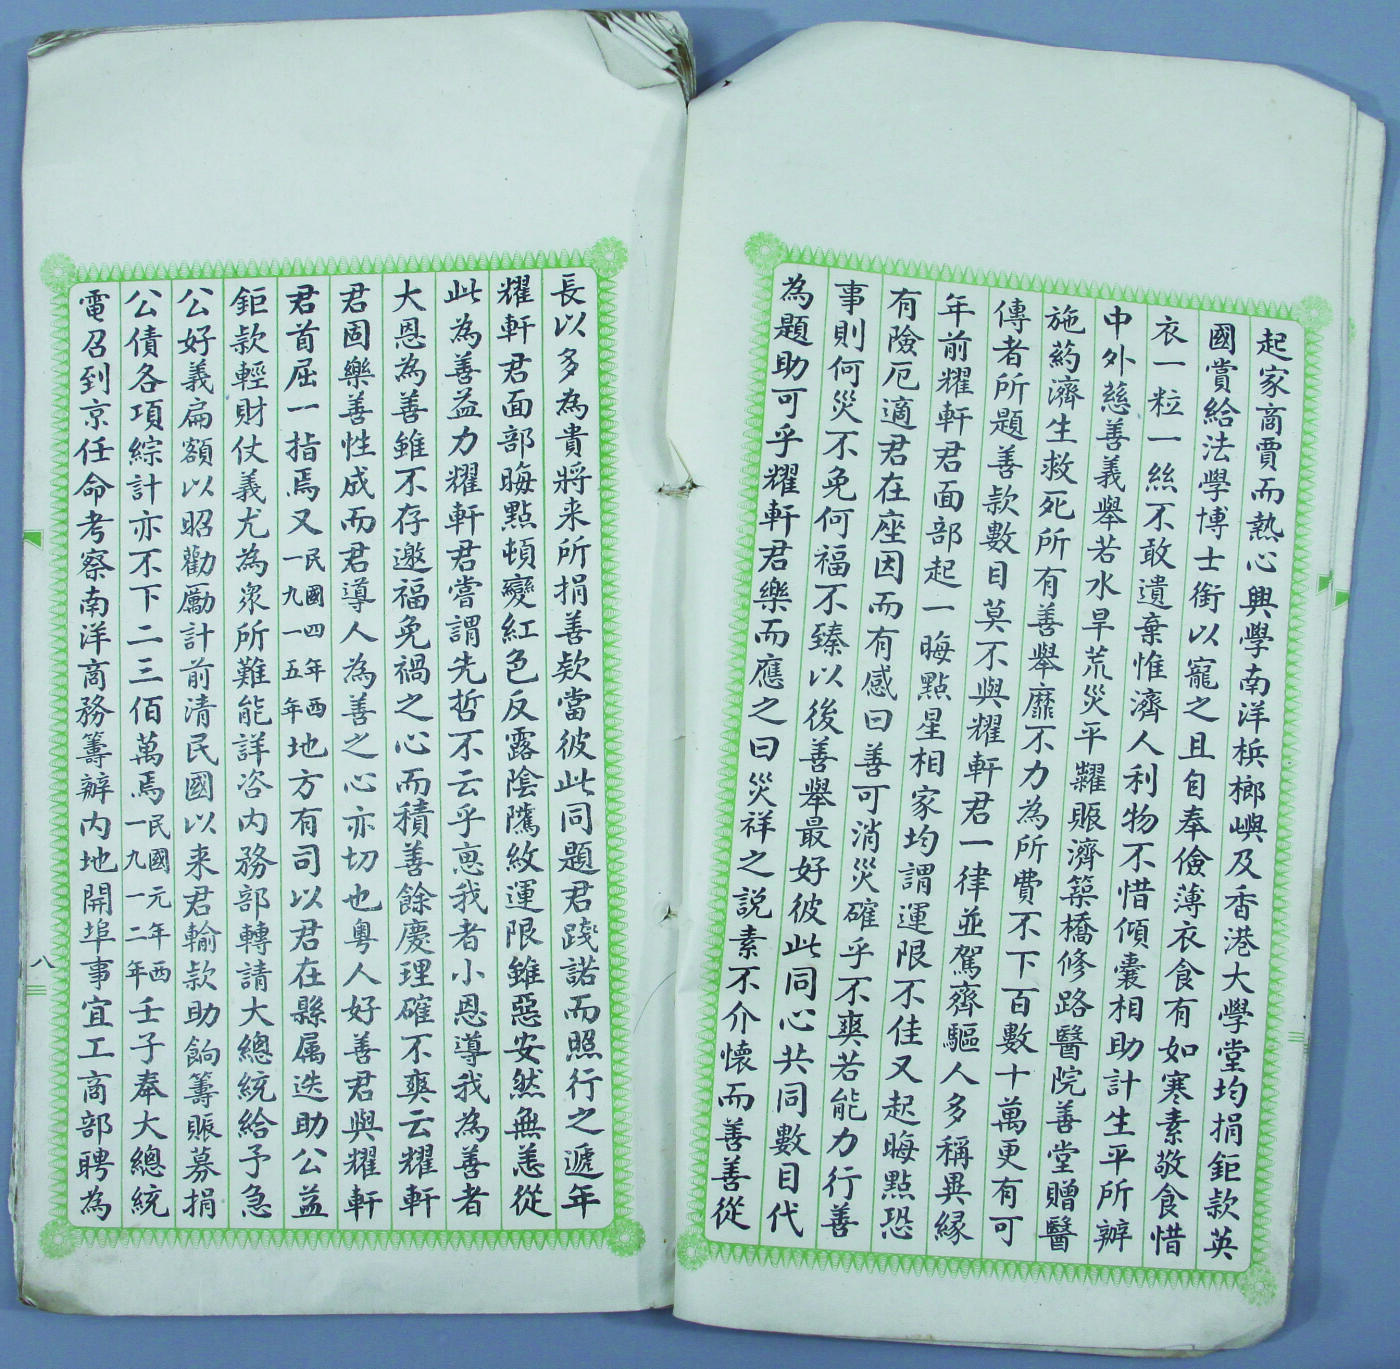 起家商賈而熱心興學南洋梹榔嶼及香港大學堂均捐鉅款英
國賞給法學博士銜以寵之且自奉儉薄衣食有如寒素敬食惜
衣一粒一絲不敢遺棄惟濟人利物不惜傾囊相助計生平所辦
中外慈善義舉若水旱荒災平糶賑濟築橋修路醫院善堂贈醫
施葯濟生救死所有善舉靡不力為所費不下百數十萬更有可
傳者所題善款數目莫不與耀軒君一律並駕齊驅人多稱異緣
年前耀軒君面部起一晦點星相家均謂運限不佳又起晦點恐
有險厄適君在座因而有感曰善可消災確乎不爽若能力行善
事則何災不免何福不臻以後善舉最好彼此同心共同數目代
為題助可乎耀軒君樂而應之曰災祥之説素不介懷而善善從
長以多為貴將来所捐善欵當彼此同題君踐諾而照行之遞年
耀軒君面部晦點頓變紅色反露陰騭紋運限雖惡安然無恙從
此為善益力耀軒君嘗謂先哲不云乎恵我者小恩導我為善者
大恩為善雖不存邀福免禍之心而積善餘慶理確不爽云耀軒
君固樂善性成而君導人為善之心亦切也粵人好善君與耀軒
君首屈一指焉又民國四年西一九一五年地方有司以君在縣属迭助公益
鉅款輕財仗義尤為衆所難能詳咨内務部轉請大總統給予急
公好義扁額以昭勸勵計前清民國以来君輸款助餉籌賑募捐
公債各項綜計亦不下二三佰萬焉民國元年西一九一二年壬子奉大總統
電召到京任命考察南洋商務籌辦内地開埠事宜工商部聘為
八